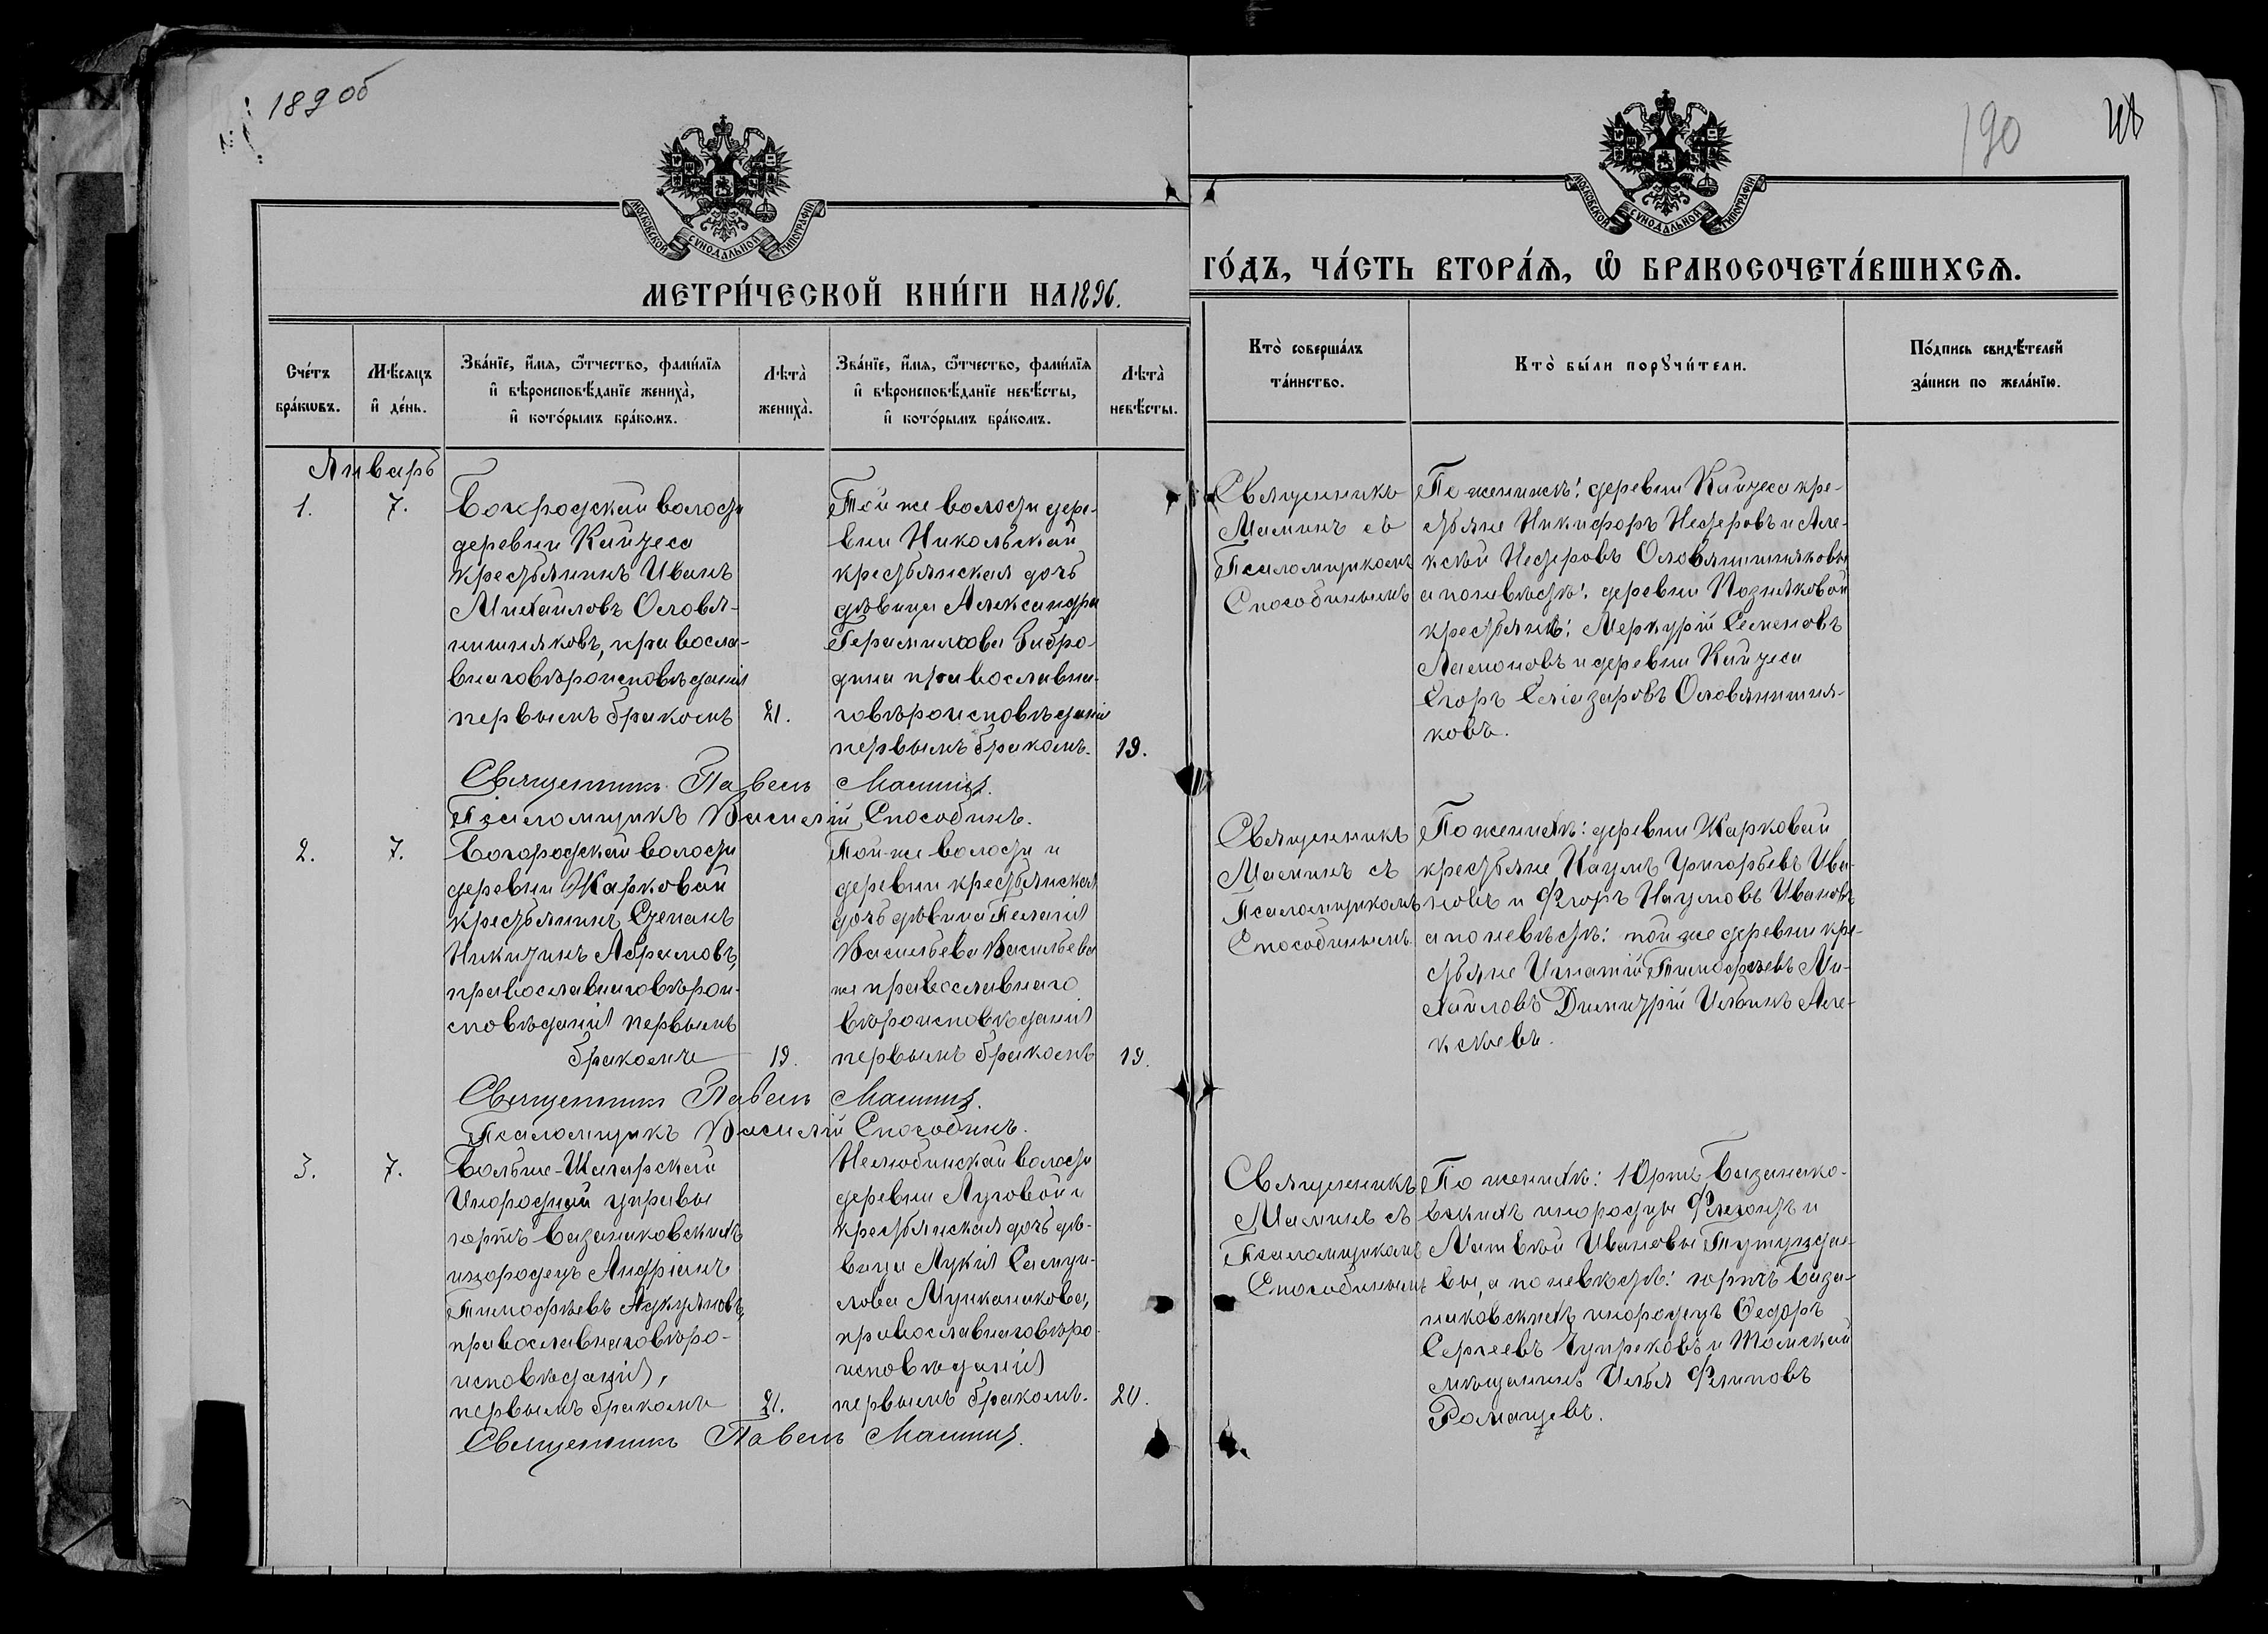 189 об
190
МОСКОВСКОЙ СѴНОДАЛЬНОЙ ТИПОГРАФІИ
МОСКОВСКОЙ СѴНОДАЛЬНОЙ ТИПОГРАФІИ
МЕТРИ́ЧЕСКОЙ КНИ́ГИ НА 1896.
ГО́ДЪ, ЧА́СТЬ ВТОРА́Ѧ, Ѽ БРАКОСОЧЕТА́ВШИХСѦ.
Сче́тъ
бра́кѡвъ.
Мѣ́сяцъ
и҆ де́нь.
Зва́нїе, и҆́мя, ѻ҆́тчество, фами́лїя
и҆ вѣроисповѣ́данїе жениха̀,
и҆ кото́рымъ бра́комъ.
Лѣта̀
жениха̀.
Зва́нїе, и҆́мя, ѻ҆́тчество, фами́лїя
и҆ вѣроисповѣ́данїе невѣ́сты,
и҆ кото́рымъ бра́комъ.
Лѣта̀
невѣ́сты.
Кто̀ соверша́лъ
та́инство.
Кто̀ бы́ли порꙋчи́тели.
По́дпись свидѣ́телей
за́писи по жела́нїю.
Январь
1.
7.
Богородской волости
деревни Кайтеса
крестьянинъ Иванъ
Михайловъ Оловя-
нишниковъ, правосла-
внаго вѣроисповѣданія
первымъ бракомъ
21.
Той же волости дере-
вни Никольской
крестьянская дочь
дѣвица Александра
православна-
го вѣроисповѣданія
первымъ бракомъ.
19.
Священникъ
Маминъ съ
Псаломщикомъ
Способинымъ
По женихѣ: деревни Кайтеса кре-
стьяне Никифоръ Нестеровъ и Але-
ксѣй Нестеровъ Оловянишниковы
а по невѣстѣ: деревни Позняковой
крестьян: Меркурій Семеновъ
и деревни Кайтеса
Егоръ Еліазаровъ Оловянишни-
ковъ.
Священникъ Павелъ Маминъ.
Псаломщикъ Василій Способинъ.
2.
7.
Богородской волости
деревни Жарковой
крестьянинъ Степанъ
Никитинъ Абрамовъ,
православнаго вѣрои-
сповѣданія первымъ
бракомъ
19.
Той-же волости и
деревни крестьянская
дочь дѣвица Пелагія
Васильева Васильева
же православнаго
вѣроисповѣданія
первымъ бракомъ
19.
Священникъ
Маминъ съ
Псаломщикомъ
Способинымъ
По женихѣ: деревни Жарковой
крестьяне Наумъ Григорьевъ Ива-
новъ и Егоръ Наумовъ Ивановъ
а по невѣстѣ: той же деревни кре-
стьяне Игнатій Тимофѣевъ Ми-
хайловъ Димитрій Ильинъ Але-
ксѣевъ.
Священникъ Павелъ Маминъ.
Псаломщикъ Василій Способинъ.
3.
7.
Больше-Шегарской
Инородной управы
юртъ Базанаковскихъ
инородецъ Андріанъ
Тимофѣевъ
православнаго вѣро-
исповѣданія,
первымъ бракомъ
21.
Нелюбинской волости
деревни Луговой
крестьянская дочь дѣ-
вица Лукія Самуи-
лова
православнаго вѣро-
исповѣданія
первымъ бракомъ.
20.
Священникъ
Маминъ съ
Псаломщикомъ
Способинымъ
По женихѣ: юртъ Базанако-
вскихъ инородцы и
Матвѣй Ивановы
вы, а по невѣстѣ: юртъ База-
наковскихъ инородецъ Ѳедоръ
Сергеевъ и Томский
мѣщанинъ Илья Филиповъ
Романцевъ.
Священникъ Павелъ Маминъ.